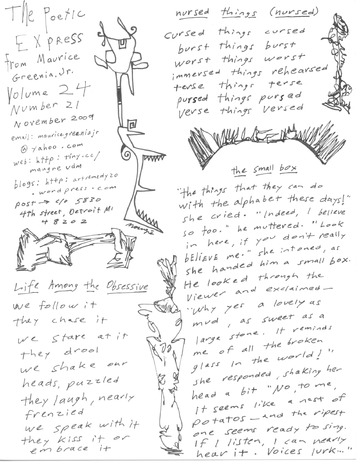 The Poetic
Express
From Maurice
Greenia, Jr.
Volume 24
Number 21
November 2009
email: mauricegreeniajr
@ yahoo . com
web: http: tiny.cc/
blogs: http:
. wordpress . com
post → c/o 5830
4th Street, Detroit MI
48202
Life Among the Obsessive
we follow it
they chase it
we stare at it
they drool
we shake our
heads, puzzled
they laugh, nearly
frenzied
we speak with it
they kiss it or
embrace it
nursed things (nursed)
cursed things cursed
burst things burst
worst things worst
immersed things rehearsed
terse things terse
pursed things pursed
verse things versed
the small box
"the things that they can do
with the alphabet these days!"
she cried. "Indeed, I believe
so too." he muttered. "Look
in here, if you don't really
believe me." she intoned, as
she handed him a small box.
He looked through the
viewer and exclaimed—
"Why yes a lovely as
mud, as sweet as a
large stone. It reminds
me of all the broken
glass in the world!"
she responded, shaking her
head a bit "No, to me,
It seems like a nest of
potatos — and the ripest
one seems ready to sing.
If I listen, I can nearly
hear it. Voices lurk..."